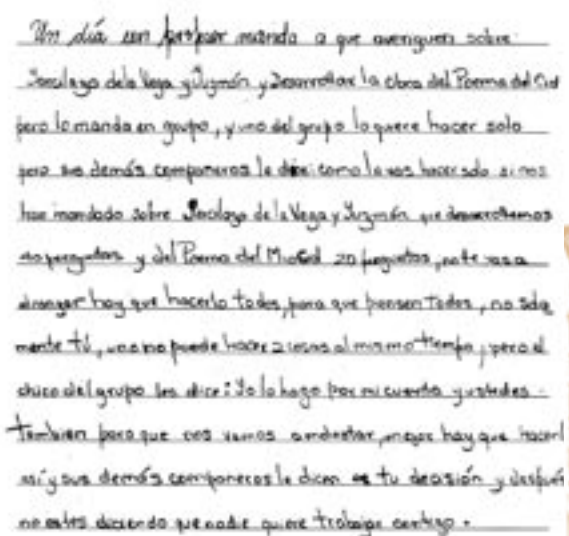 Un día un profesor manda a que averiguen sobre
Garcilazo dela Vega y Guzmán y Desarrollar la obra del Poema del Cid
pero lo manda en grupo, y uno del grupo lo quiere hacer solo
pero sus demás compañeros le dice: como lo vas hacer solo si nos
han mandado sobre Garcilazo de la Vega y Guzmán que desarrollemos
preguntas y del Poema del Mio Cid 20 preguntas, no te vas a
alcanzar hay que hacerlo todos, para que piensen Todos, no sola
mente tú, uno no puede hacer 2 cosas al mismo tiempo, pero el
chico del grupo les dice: Yo lo hago por mi cuenta y ustedes
también para que nos vamos a molestar, mejor hay que hacerl
así y sus demás compañeros le dicen es tu decisión y después
no estes diciendo que nadie quiere trabajar contigo.